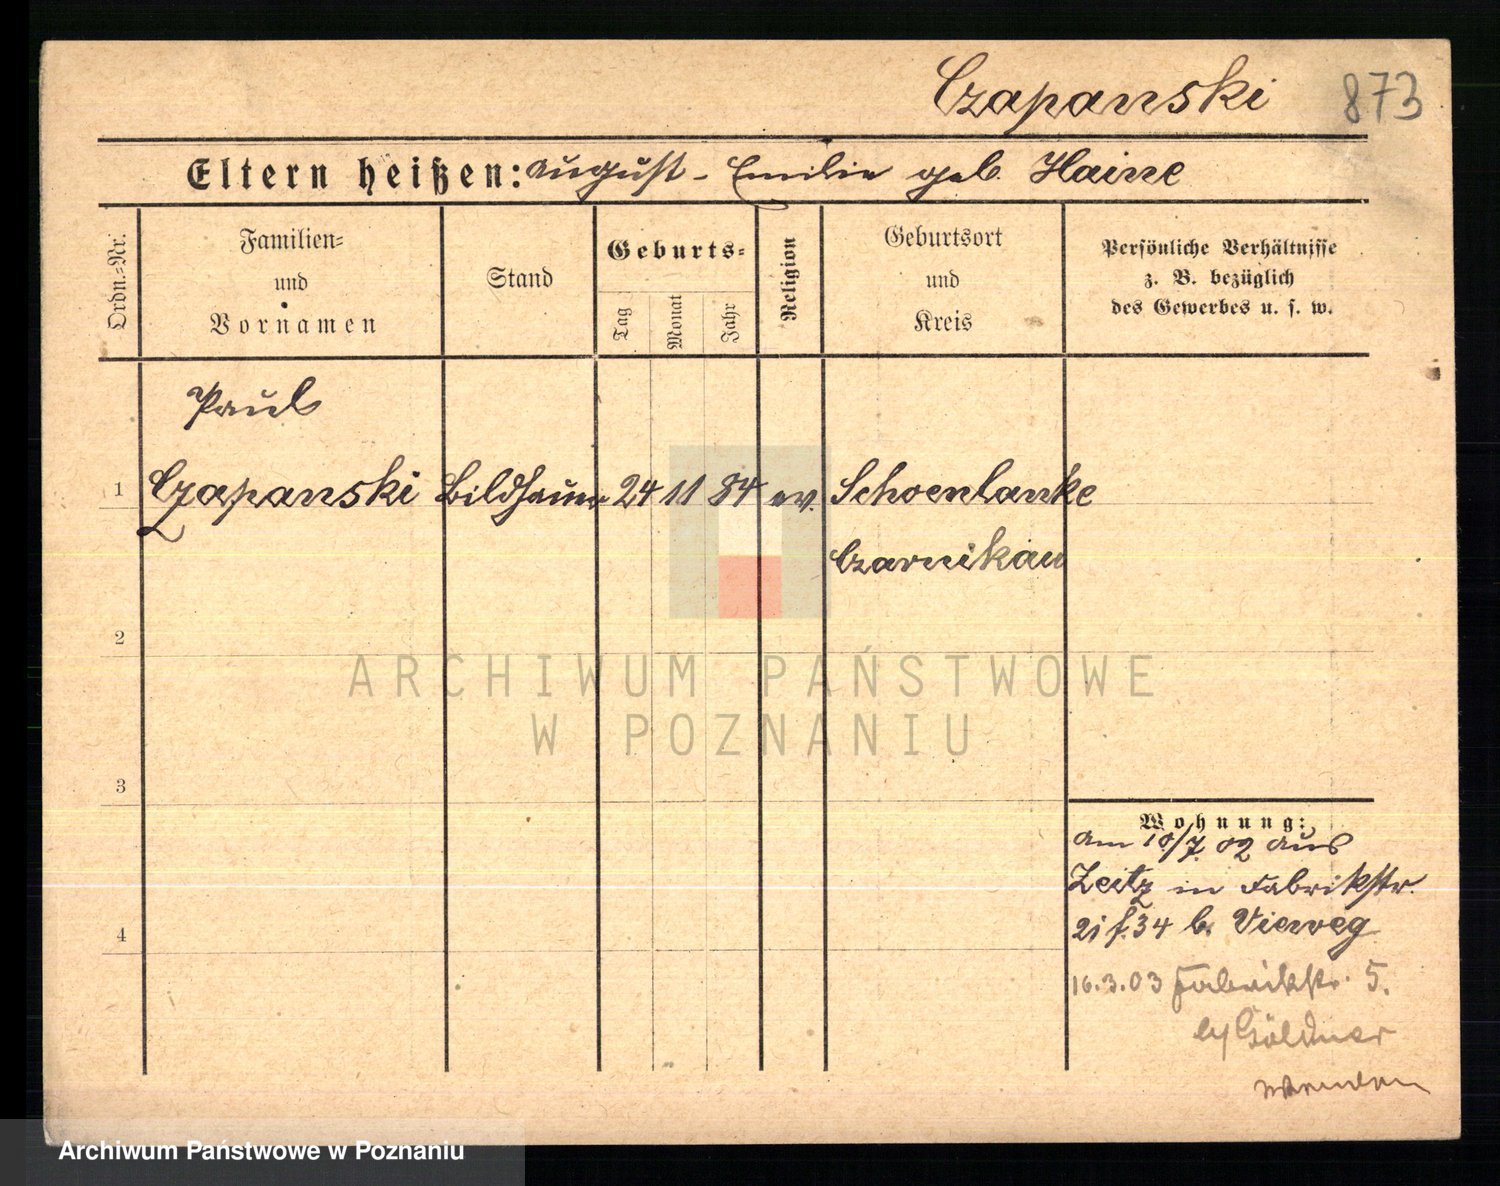 Czapanski 873
Eltern heißen: August - Emilie geb. Haine
Ordn.-Nr.
Familien-
und
Vornamen
Stand
Geburts-
Tag
Monat
Jahr
Religion
Geburtsort
und
Kreis
Persönliche Verhältnisse
z. B. bezüglich
des Gewerbes u. s. w.
Paul
1 Czapanski Bildhauer 24 11 84 ev. Schoenlanke
Czarnikau
2
ARCHIWUM PAŃSTWOWE
W POZNANIU
3
Wohnung:
am 10/7 02 aus
Zeitz in Fabrikstr.
b. Vieweg
16.3.03 Fabrikstr. 5.
Göldner
4
Archiwum Państwowe w Poznaniu